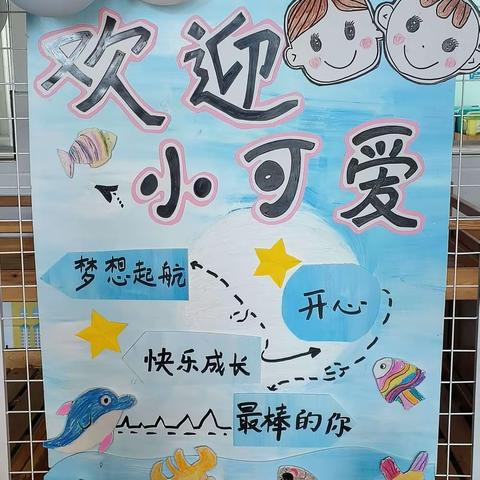 欢迎
小可爱
梦想起航
开心
快乐成长
最棒的你